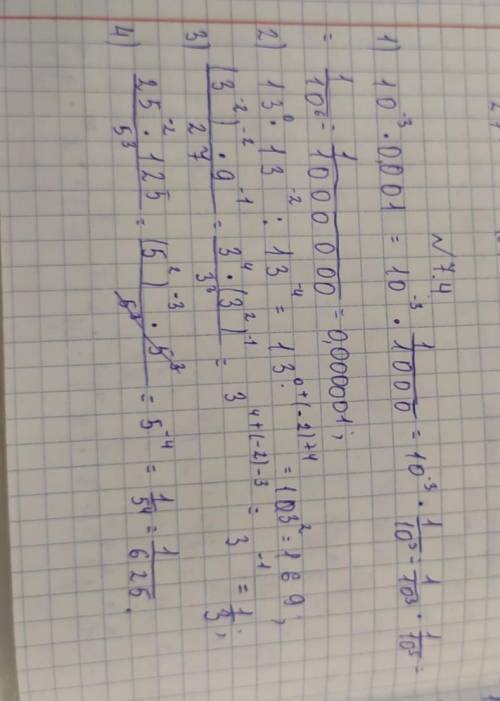 N 7.4
1) 10⁻³ · 0,001 = 10⁻³ · 1/1000 = 10⁻³ · 1/10³ = 1/10³ · 1/10³ =
= 1/10⁶ = 1/1000000 = 0,000001;
2) 13⁰ · 13⁻² : 13⁻⁴ = 13⁰⁺⁽⁻²⁾⁺⁴ = 13² = 169;
3) (3⁻²)⁻² · 9⁻¹ / 27 = 3⁴ · (3²)⁻¹ / 3³ = 3⁴⁺⁽⁻²⁾⁻³ = 3⁻¹ = 1/3;
4) 25⁻² · 125 / 5³ = (5²)⁻³ · 5³ / 5³ = 5⁻⁴ = 1/5⁴ = 1/625.